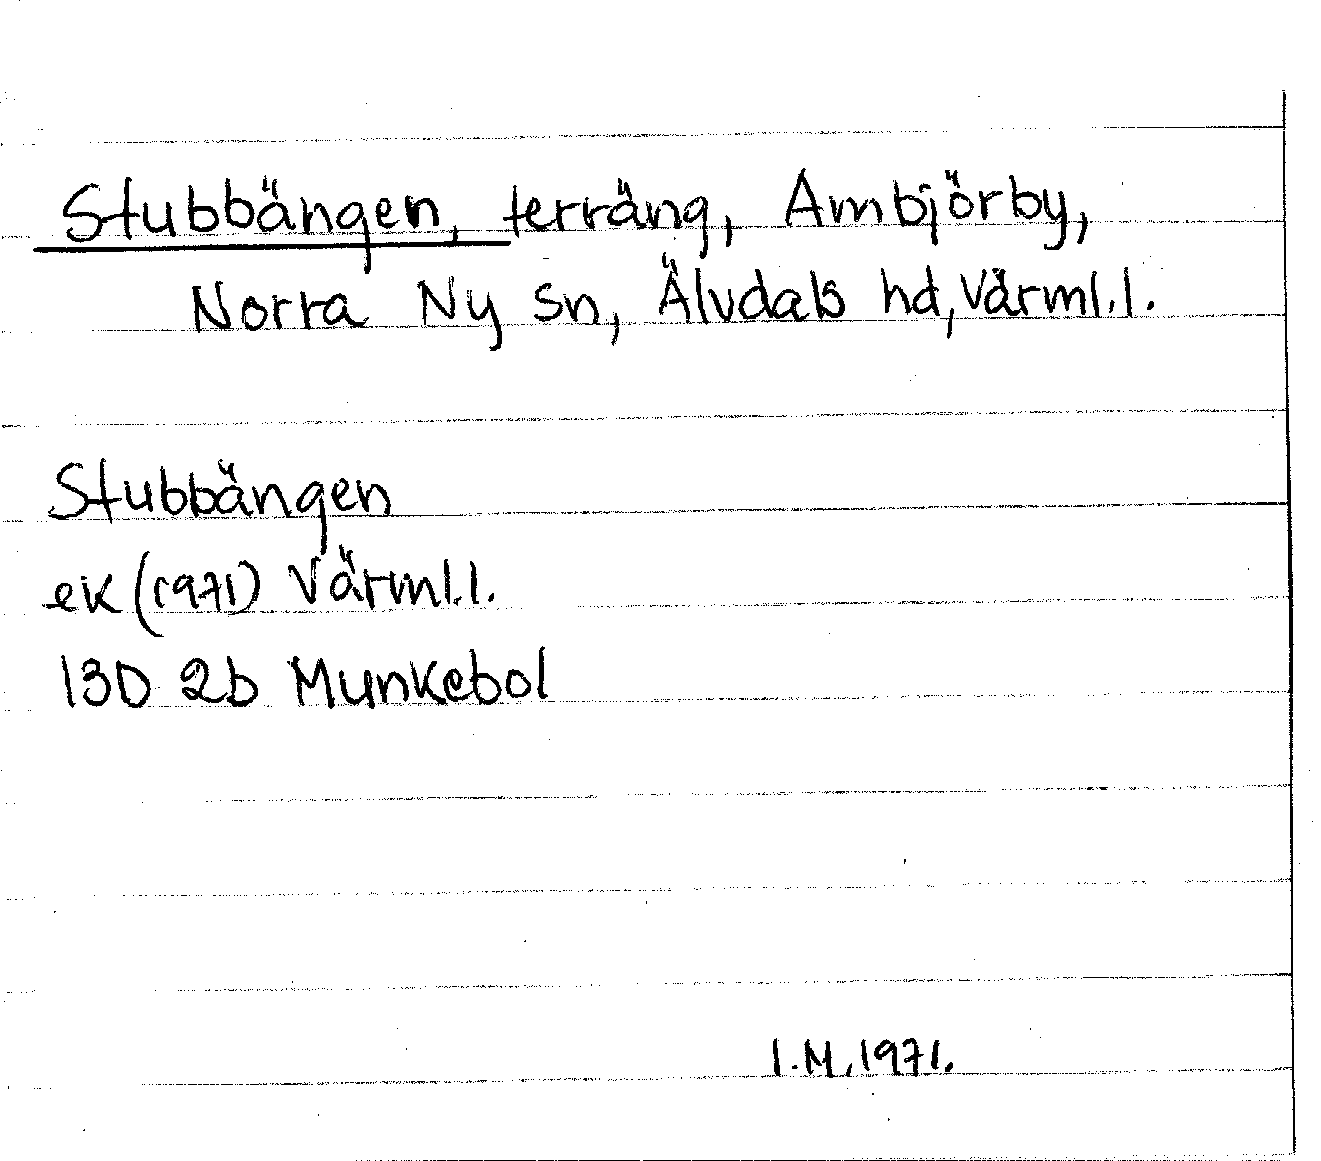 Stubbängen, terräng, Ambjörby,
Norra Ny sn, Älvdals hd, Värml.l.
Stubbängen
ek (1971) Värml.l.
13D 2b Munkebol
I.M. 1971.